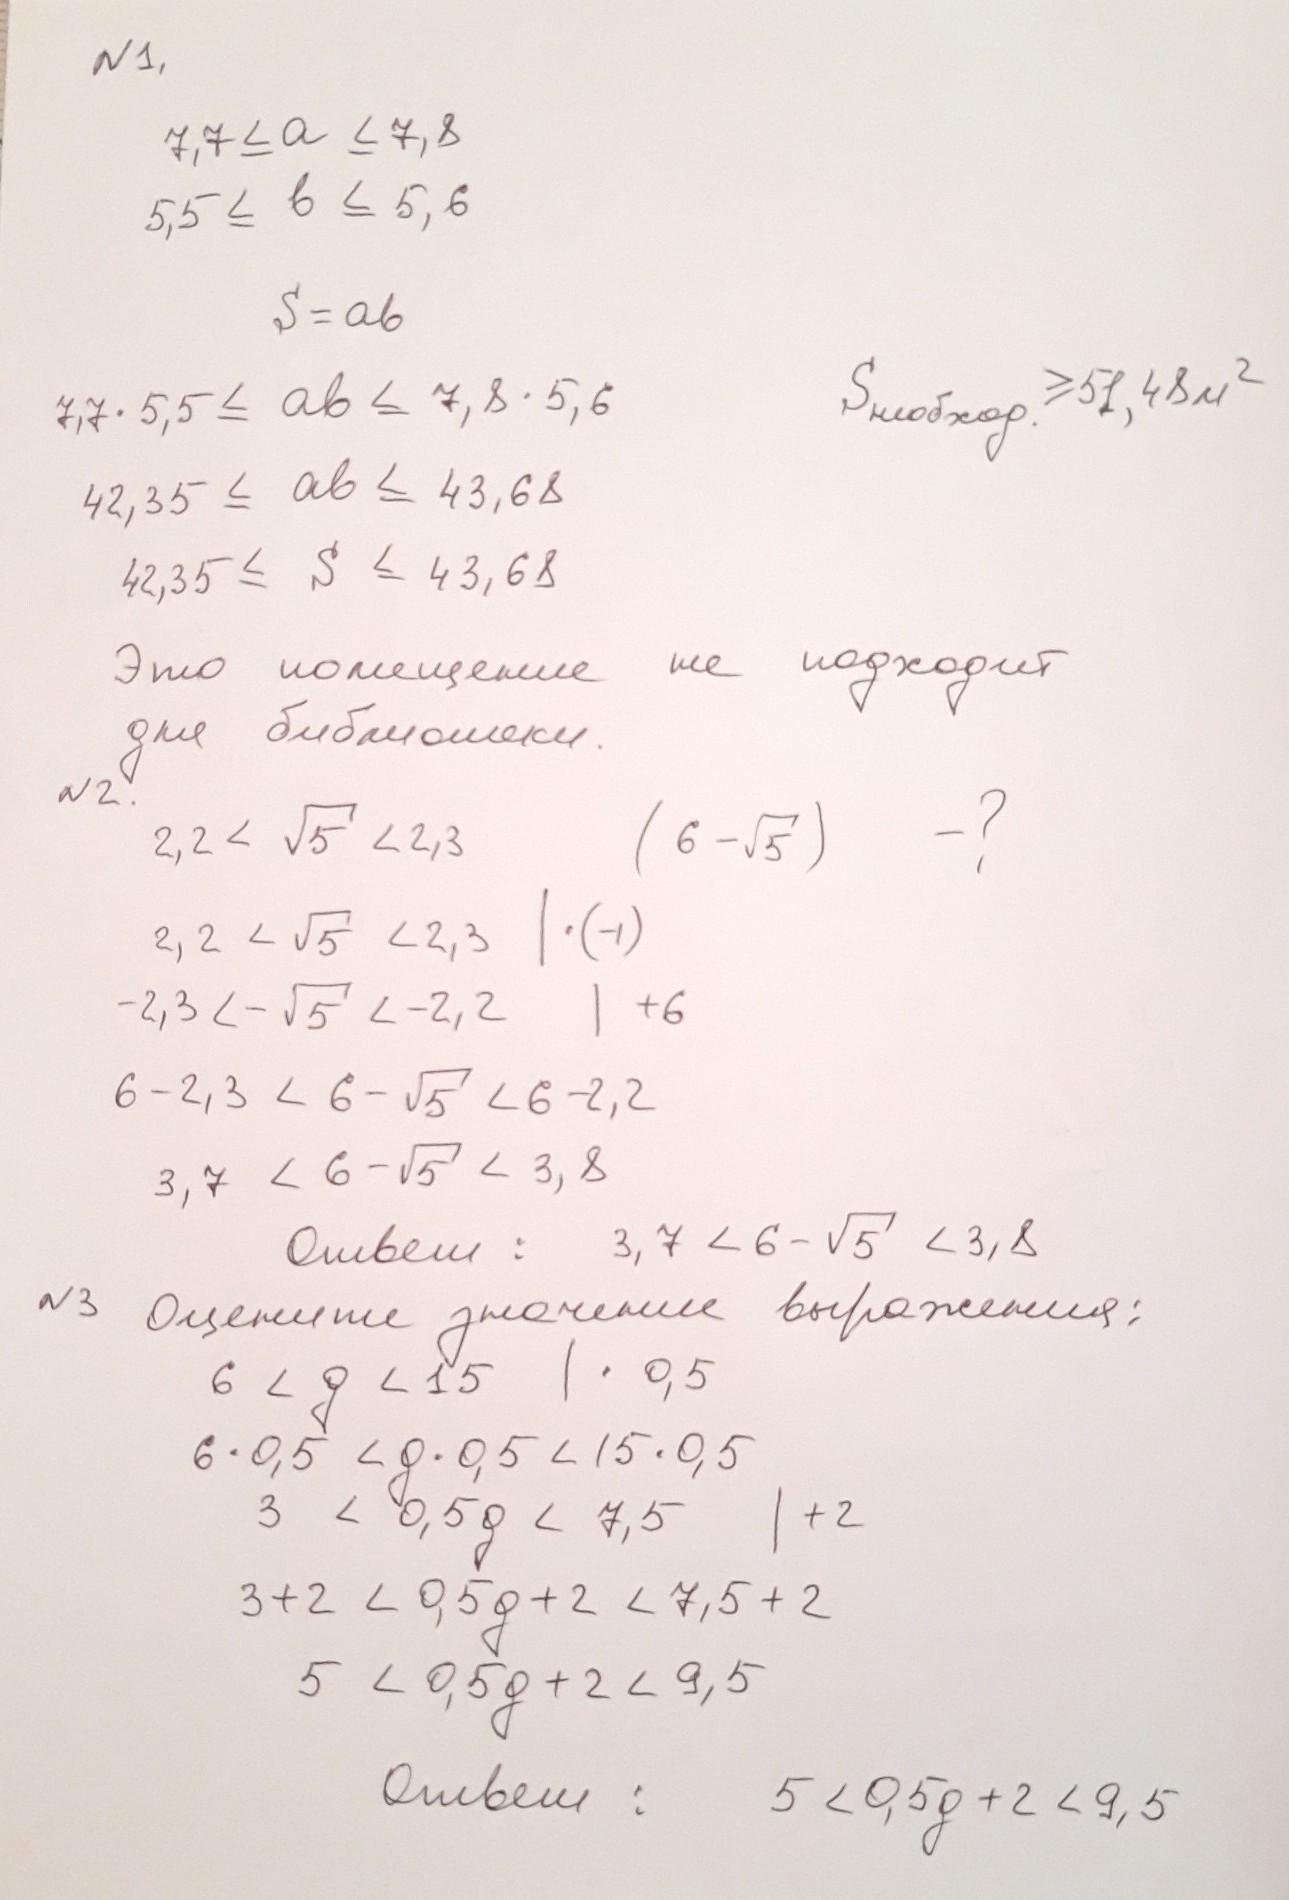 N1.
7,7 ≤ a ≤ 7,8
5,5 ≤ b ≤ 5,6
S = ab
7,7 · 5,5 ≤ ab ≤ 7,8 · 5,6
Sнеобход. ≥ 51,48 м²
42,35 ≤ ab ≤ 43,68
42,35 ≤ S ≤ 43,68
Это помещение не подходит
для библиотеки.
N2.
2,2 < √5 < 2,3 (6 - √5) - ?
2,2 < √5 < 2,3 | · (-1)
-2,3 < -√5 < -2,2 | +6
6 - 2,3 < 6 - √5 < 6 - 2,2
3,7 < 6 - √5 < 3,8
Ответ : 3,7 < 6 - √5 < 3,8
N3 Оцените значение выражения:
6 < g < 15 | · 0,5
6 · 0,5 < g · 0,5 < 15 · 0,5
3 < 0,5g < 7,5 | +2
3 + 2 < 0,5g + 2 < 7,5 + 2
5 < 0,5g + 2 < 9,5
Ответ : 5 < 0,5g + 2 < 9,5